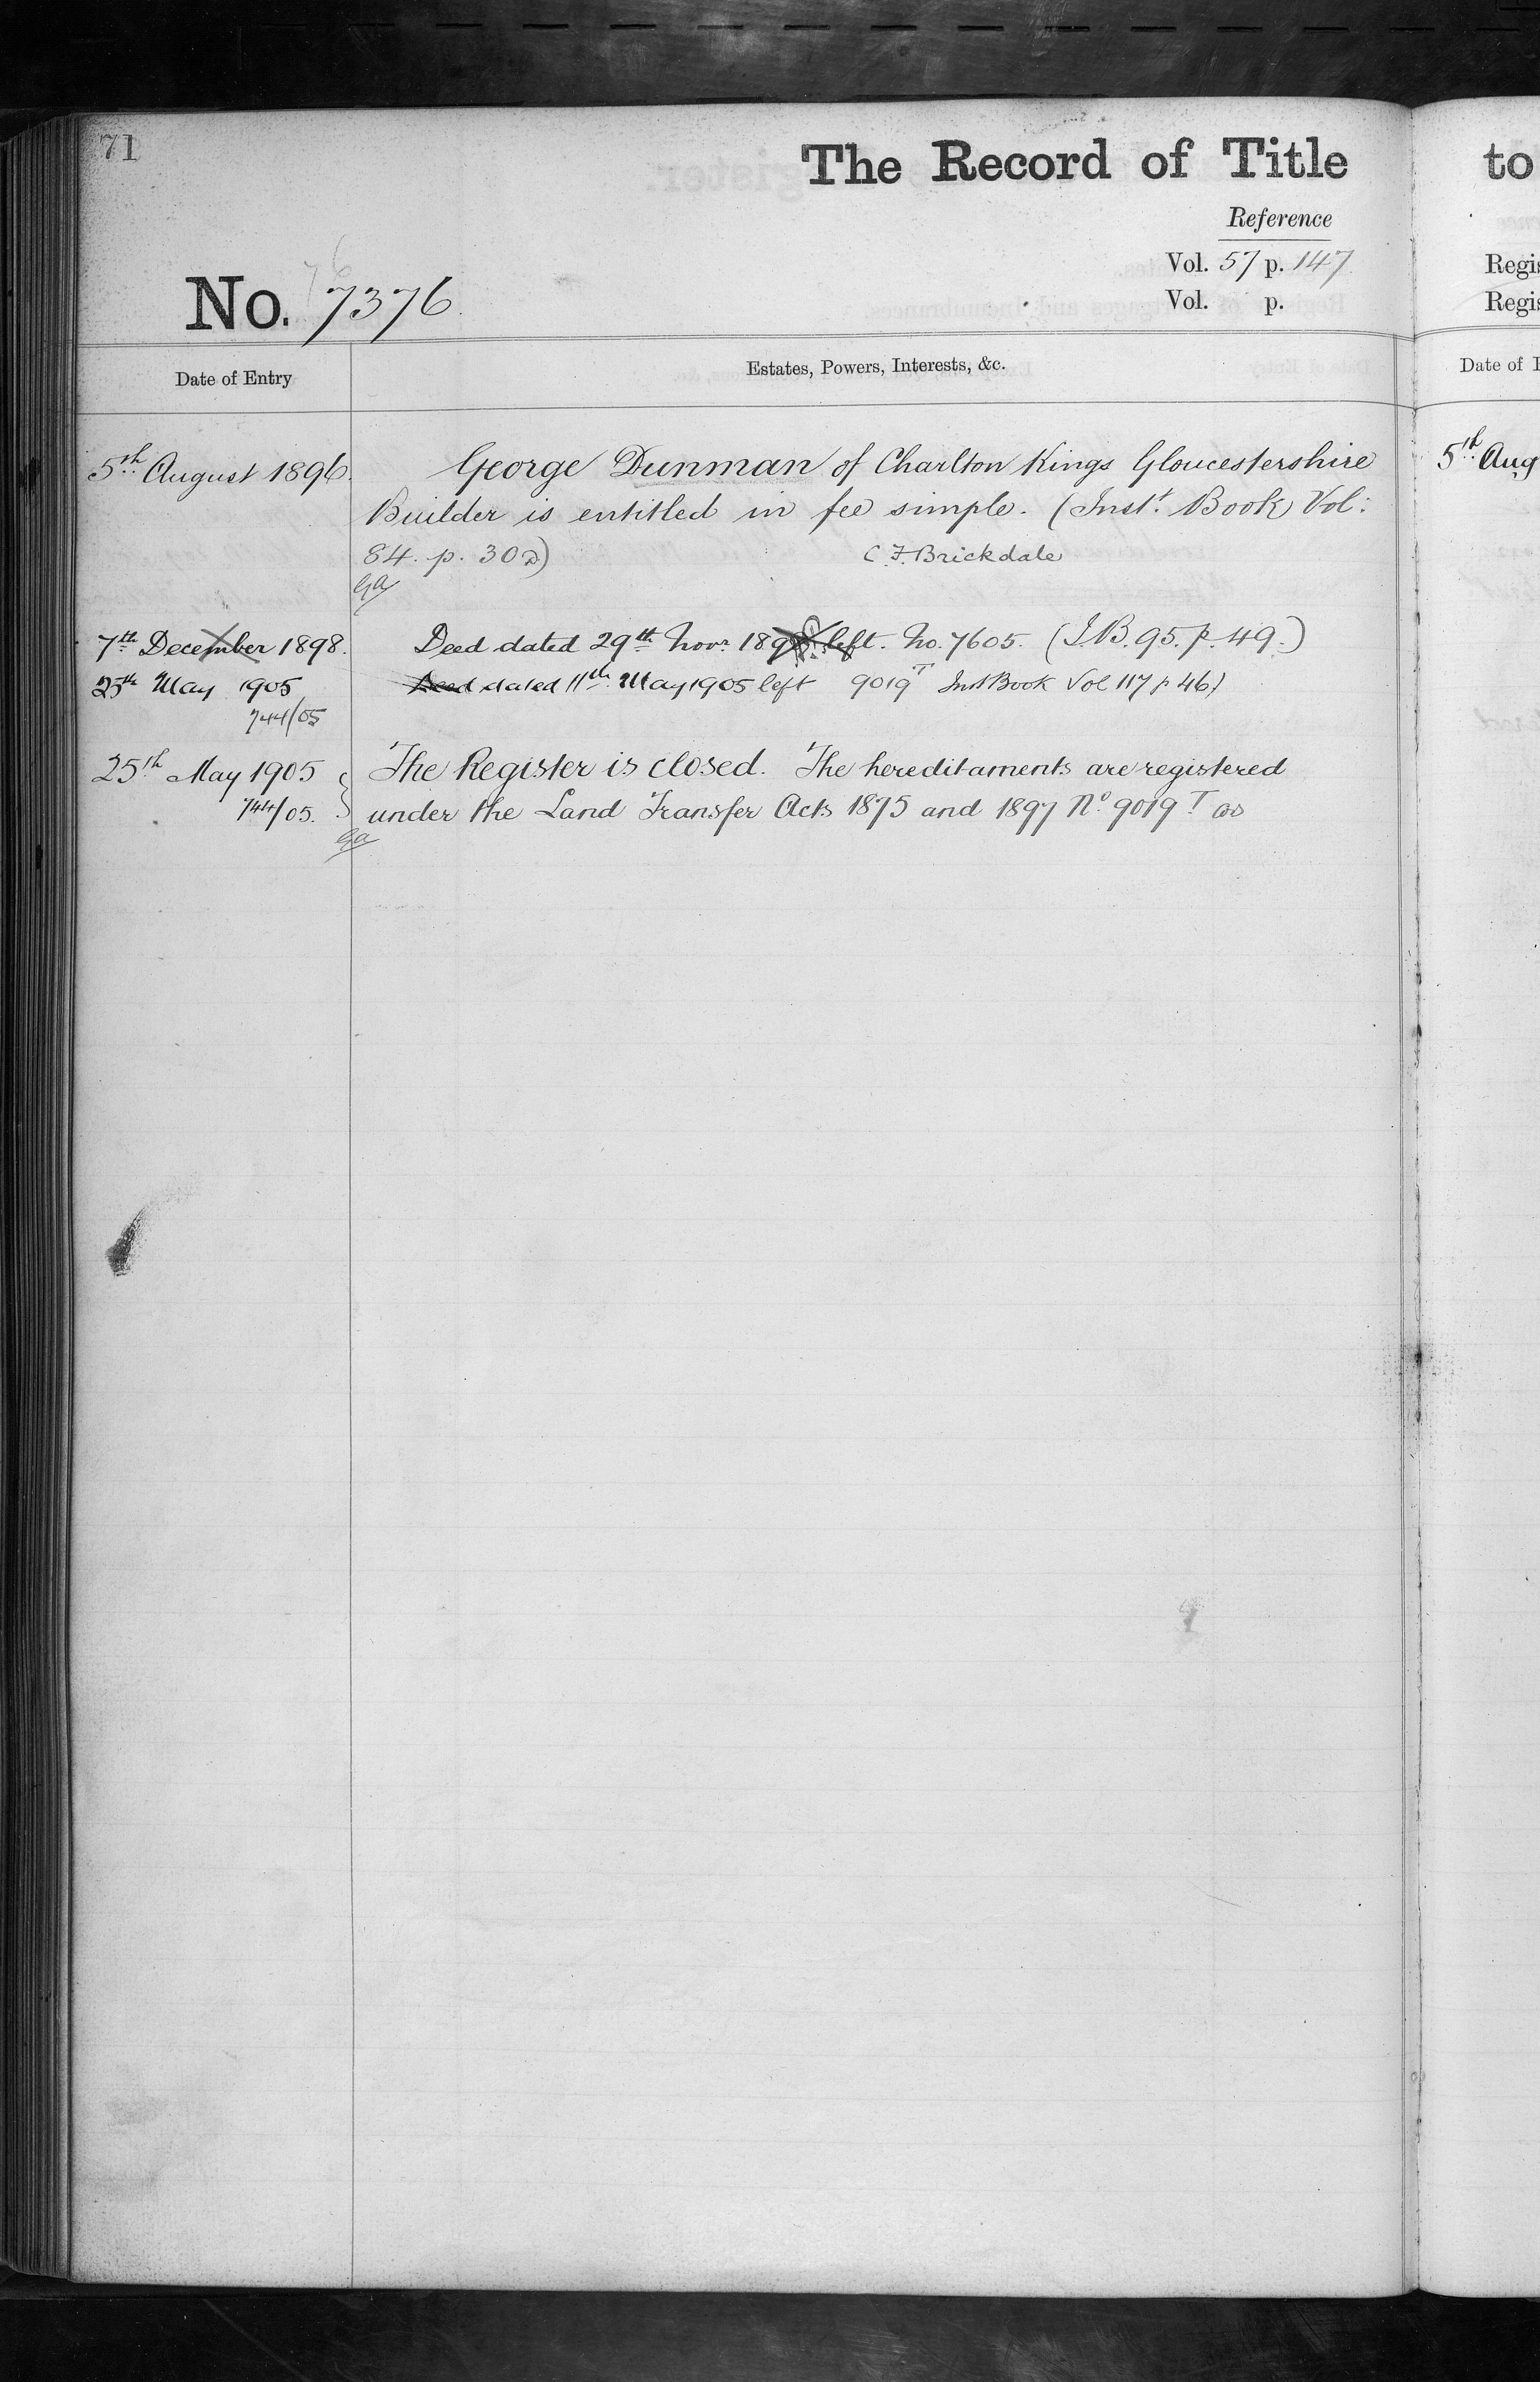 71
The Record of Title
to
Reference
Vol. 57 p. 147
Vol. p.
Regis
Regis
76
No. 7376
Date of Entry
Estates, Powers, Interests, &c.
Date of E
5th August 1896.
George Dunman of Charlton Kings Gloucestershire
5th Aug
Builder is entitled in fee simple. (Inst. Book Vol:
84. p. 302)
C. F. Brickdale
GA
7th December 1898.
Deed dated 29th Novr. 1898 left. No. 7605. (I.B. 95. p. 49.)
25th May 1905
Deed dated 11th May 1905 left 9019T Inst Book Vol 117 p 46)
744/05
25th May 1905
The Register is closed. The hereditaments are registered
744/05.
under the Land Transfer Acts 1875 and 1897 No. 9019 T
GA